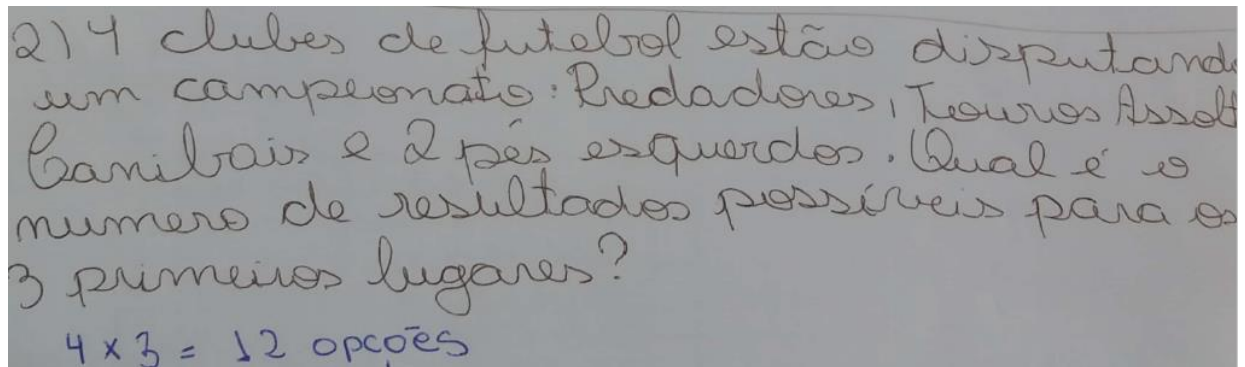 2) 4 clubes de futebol estão disputand
um campeonato: Predadores, Touros Assolt
Canibais e 2 pés esquerdos. Qual é o
numero de resultados possíveis para os
3 primeiros lugares?
4 x 3 = 12 opções